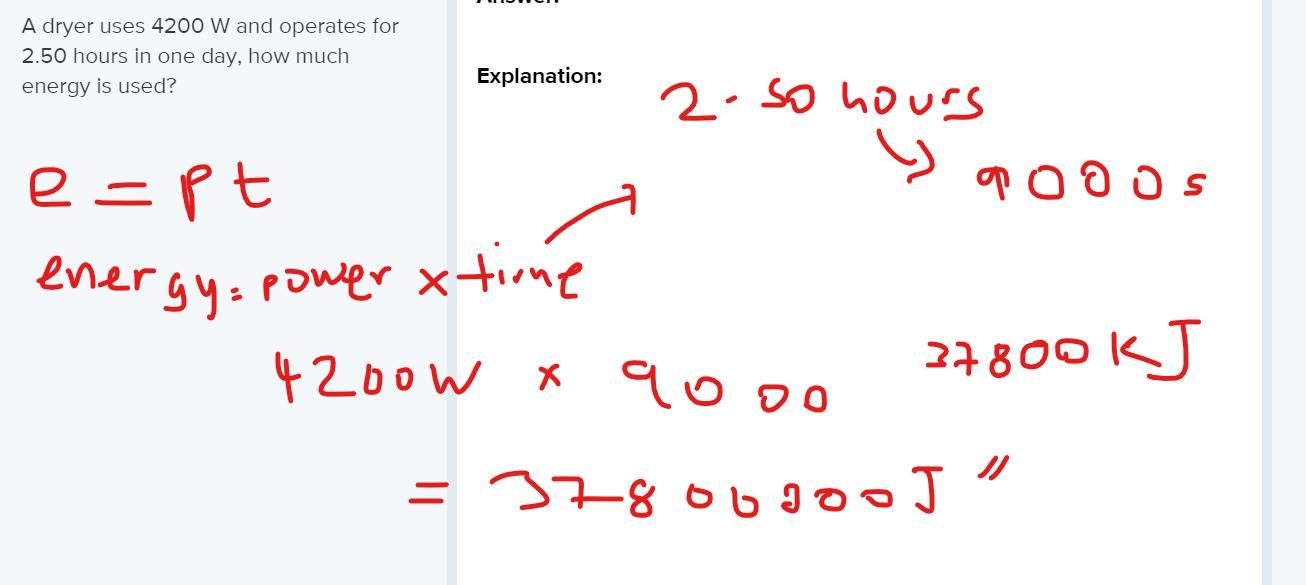 A dryer uses 4200 W and operates for
2.50 hours in one day, how much
energy is used?
Answer:
Explanation:
2.50 hours
9000s
e = pt
energy = power x time
37800KJ
4200W x 9000
= 37800000J "